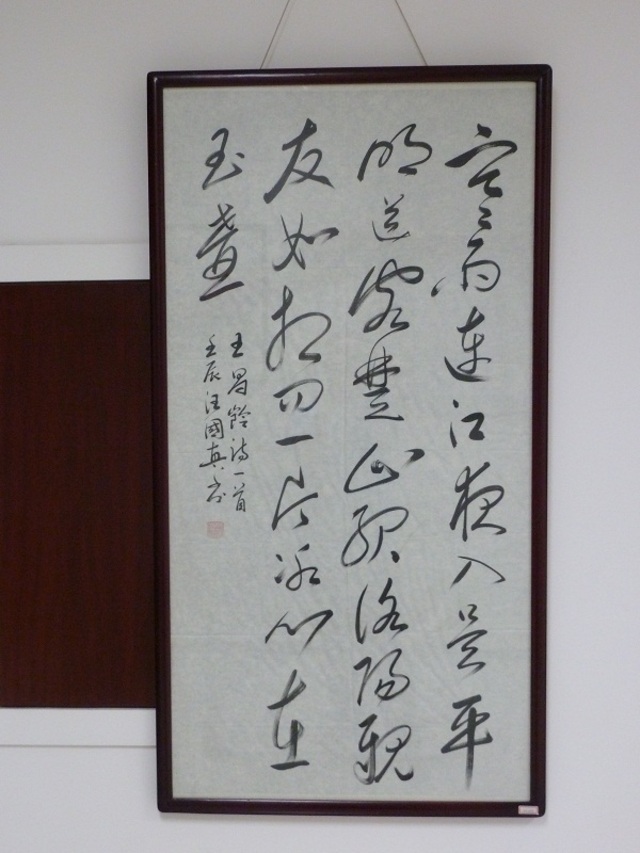 寒雨连江夜入吴平
明送客楚山孤洛陽親
友如相问一片冰心在
玉壺
王昌齡诗一首
壬辰汪國真书